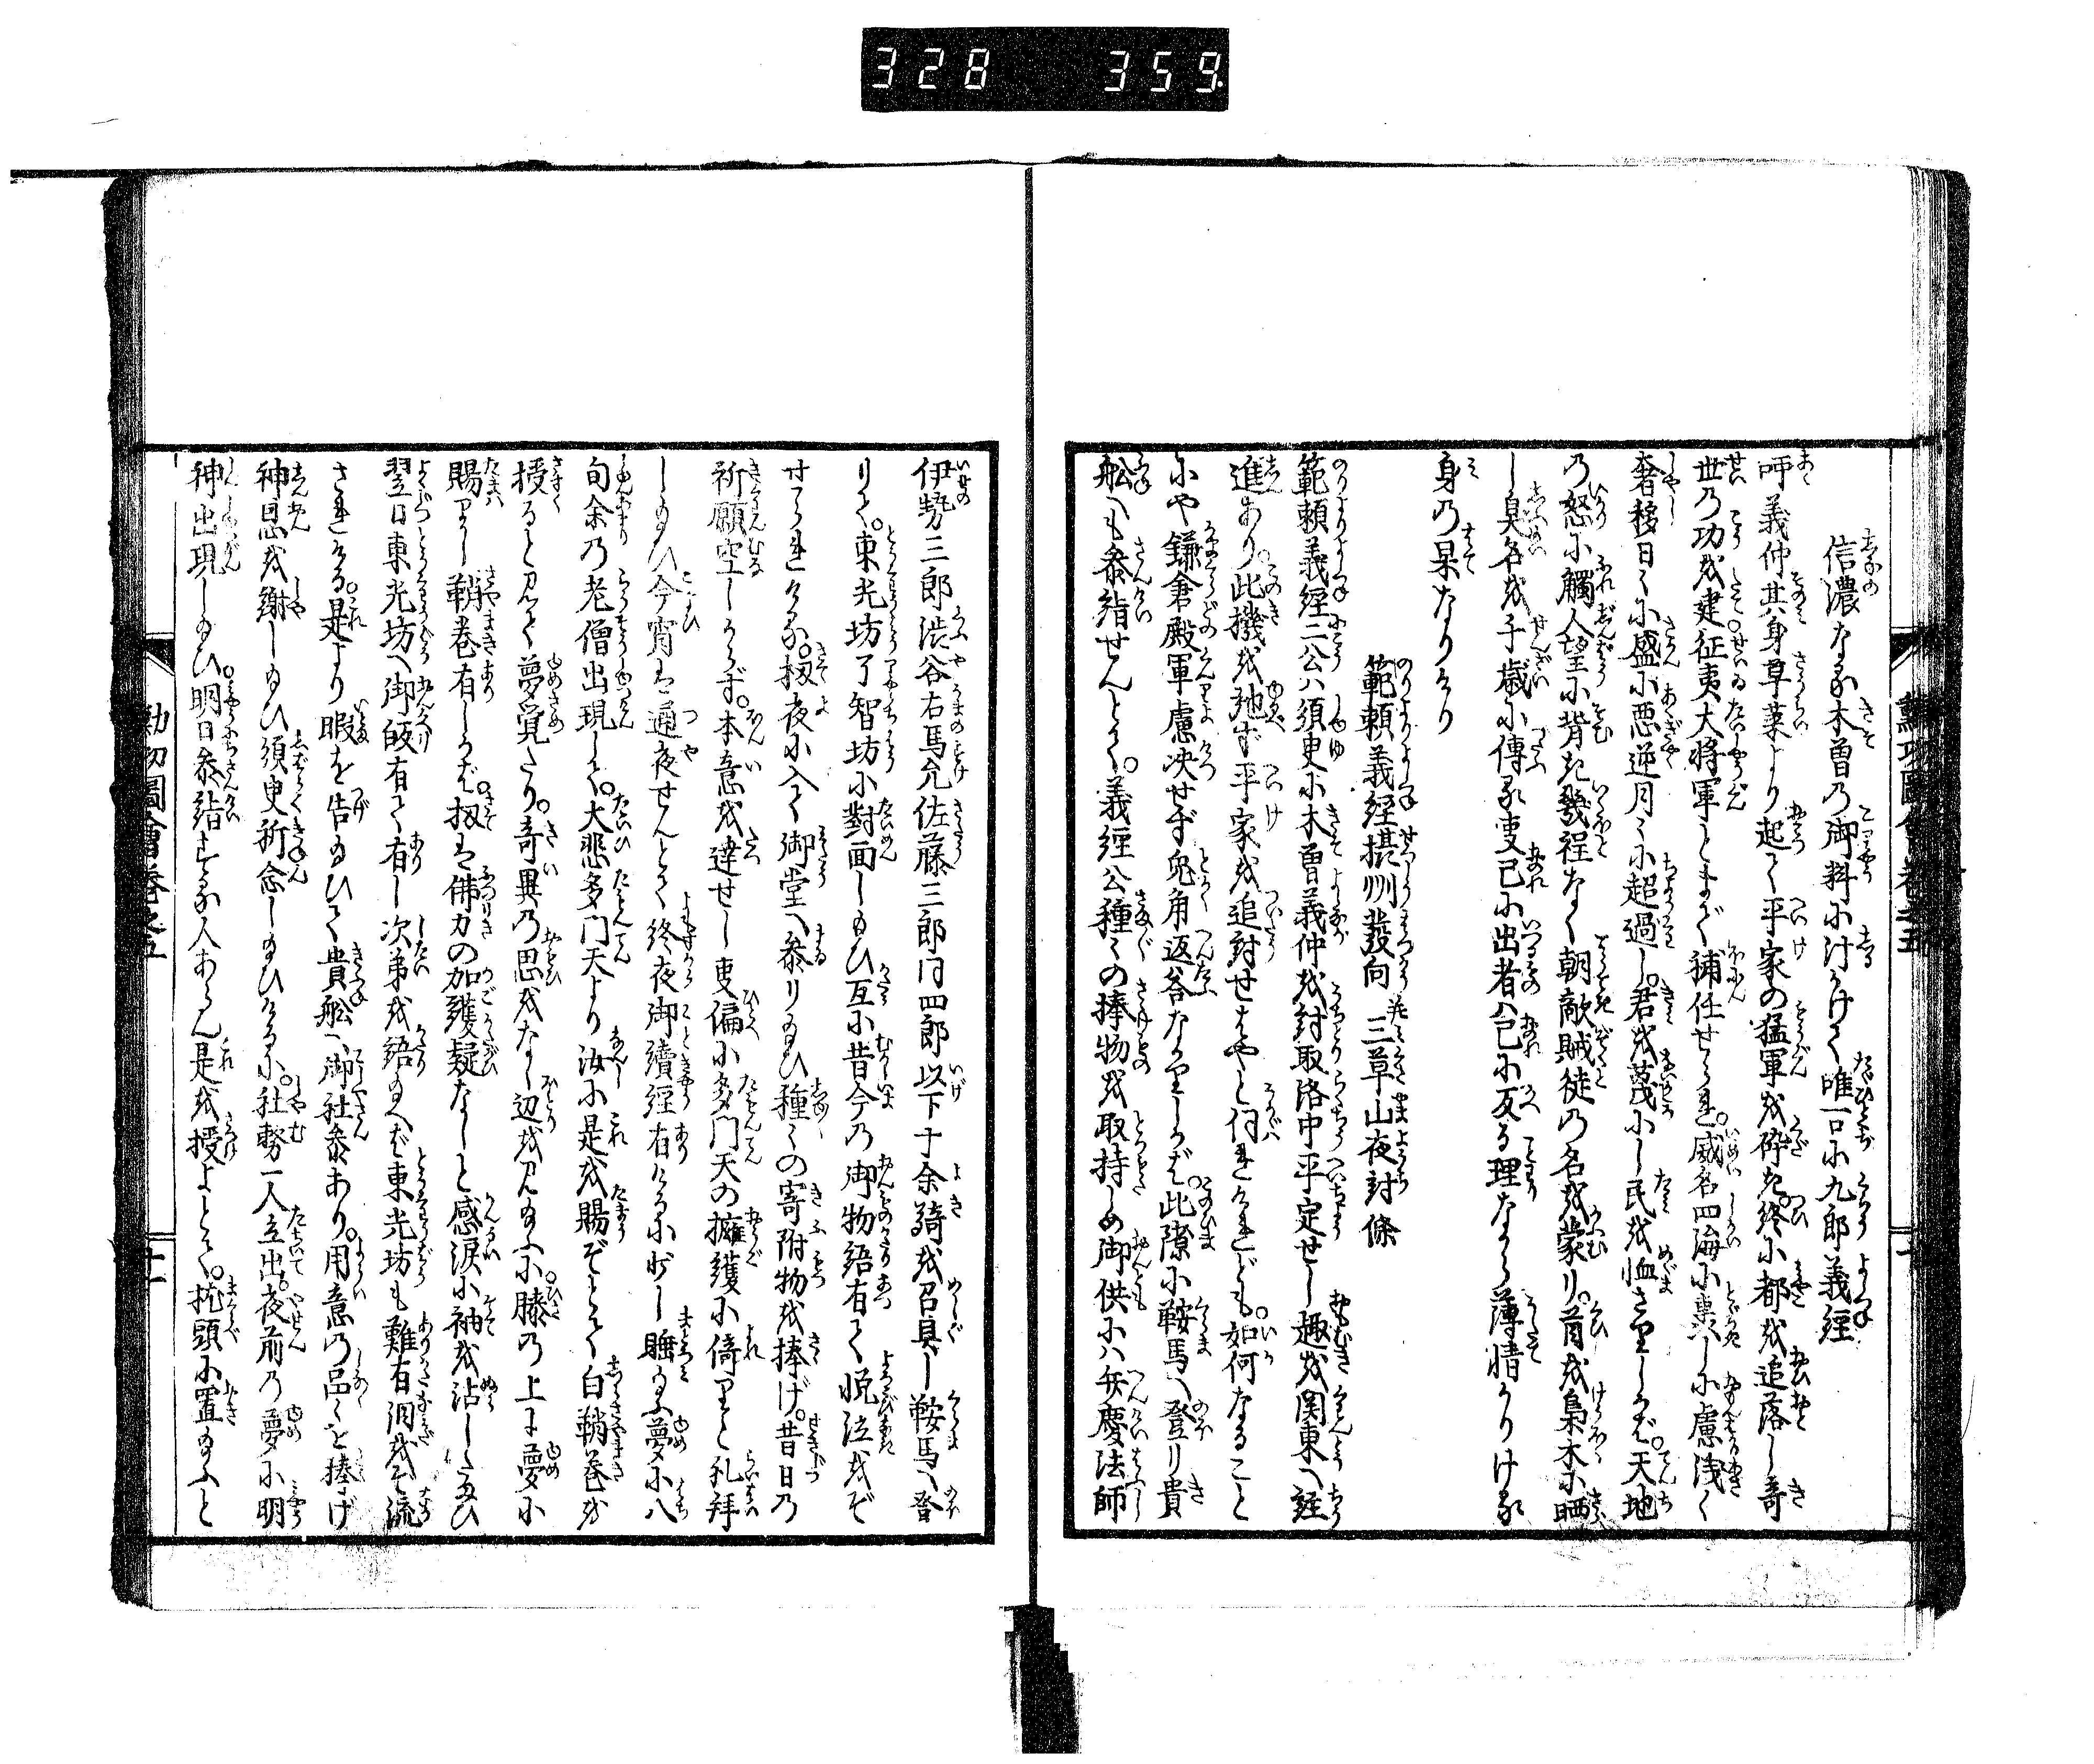 328 359
勲功圖會巻之五
信濃なる木曽の御料に汁かけて唯一口に九郎義經
呼義仲其身草莱より起て平家の猛軍を砕き終に都を追落し奇
世の功を建征夷大将軍とまで補任せられ威名四海に轟しに慮浅く
奢移日々に盛に悪逆月々に超過し君を蔑にし民を恤ざりしかば天地
の怒に觸人望に背き幾程なく朝敵賊徒の名を蒙り首を梟木に晒
し臭名を千歳に傳る叓已に出者ハ已に反る理なら薄情かりける
身の果なりけり
範頼義經摂州發向 并三草山夜討條
範頼義經二公ハ須叟に木曽義仲を討取洛中平定せし趣を関東へ註
進あり此機を弛ず平家を追討せばやと伺れけれども如何なること
にや鎌倉殿軍慮决せず兎角返答なかりしかば此隙に鞍馬へ登り貴
舩へも叅詣せんとて義經公種々の捧物を取持しめ御供にハ弁慶法師
伊勢三郎渋谷右馬允佐藤三郎同四郎以下十余騎を召具し鞍馬へ登
りて東光坊了智坊に對面し給ひ互に昔今の御物語有て悦泣をぞ
せられける扨夜に入て御堂へ叅り給ひ種々の寄附物を捧げ昔日の
祈願空しからず本意を達せし叓偏に多門天の擁護に倚りと礼拜
し給ひ今宵は通夜せんとて終夜御讀經有けるに少し睡給ふ夢に八
旬余の老僧出現して大悲多門天より汝に是を賜ぞとて白鞘巻を
授ると見て夢覚たり奇異の思をなし辺を見給ふに膝の上に夢に
賜りし鞘巻有しかば扨は佛力の加護疑なしと感涙に袖を沾し給ひ
翌日東光坊へ御皈有て有し次第を語給へば東光坊も難有泪をぞ流
されける是より暇を告給ひて貴舩へ御社叅あり用意の品々を捧げ
神恩を謝し給ひ須叟祈念し給ひけるに社務一人立出夜前の夢に明
神出現し給ひ明日叅詣する人あらん是を授よとて枕頭に置給ふと
勲功圖會巻之五
十一